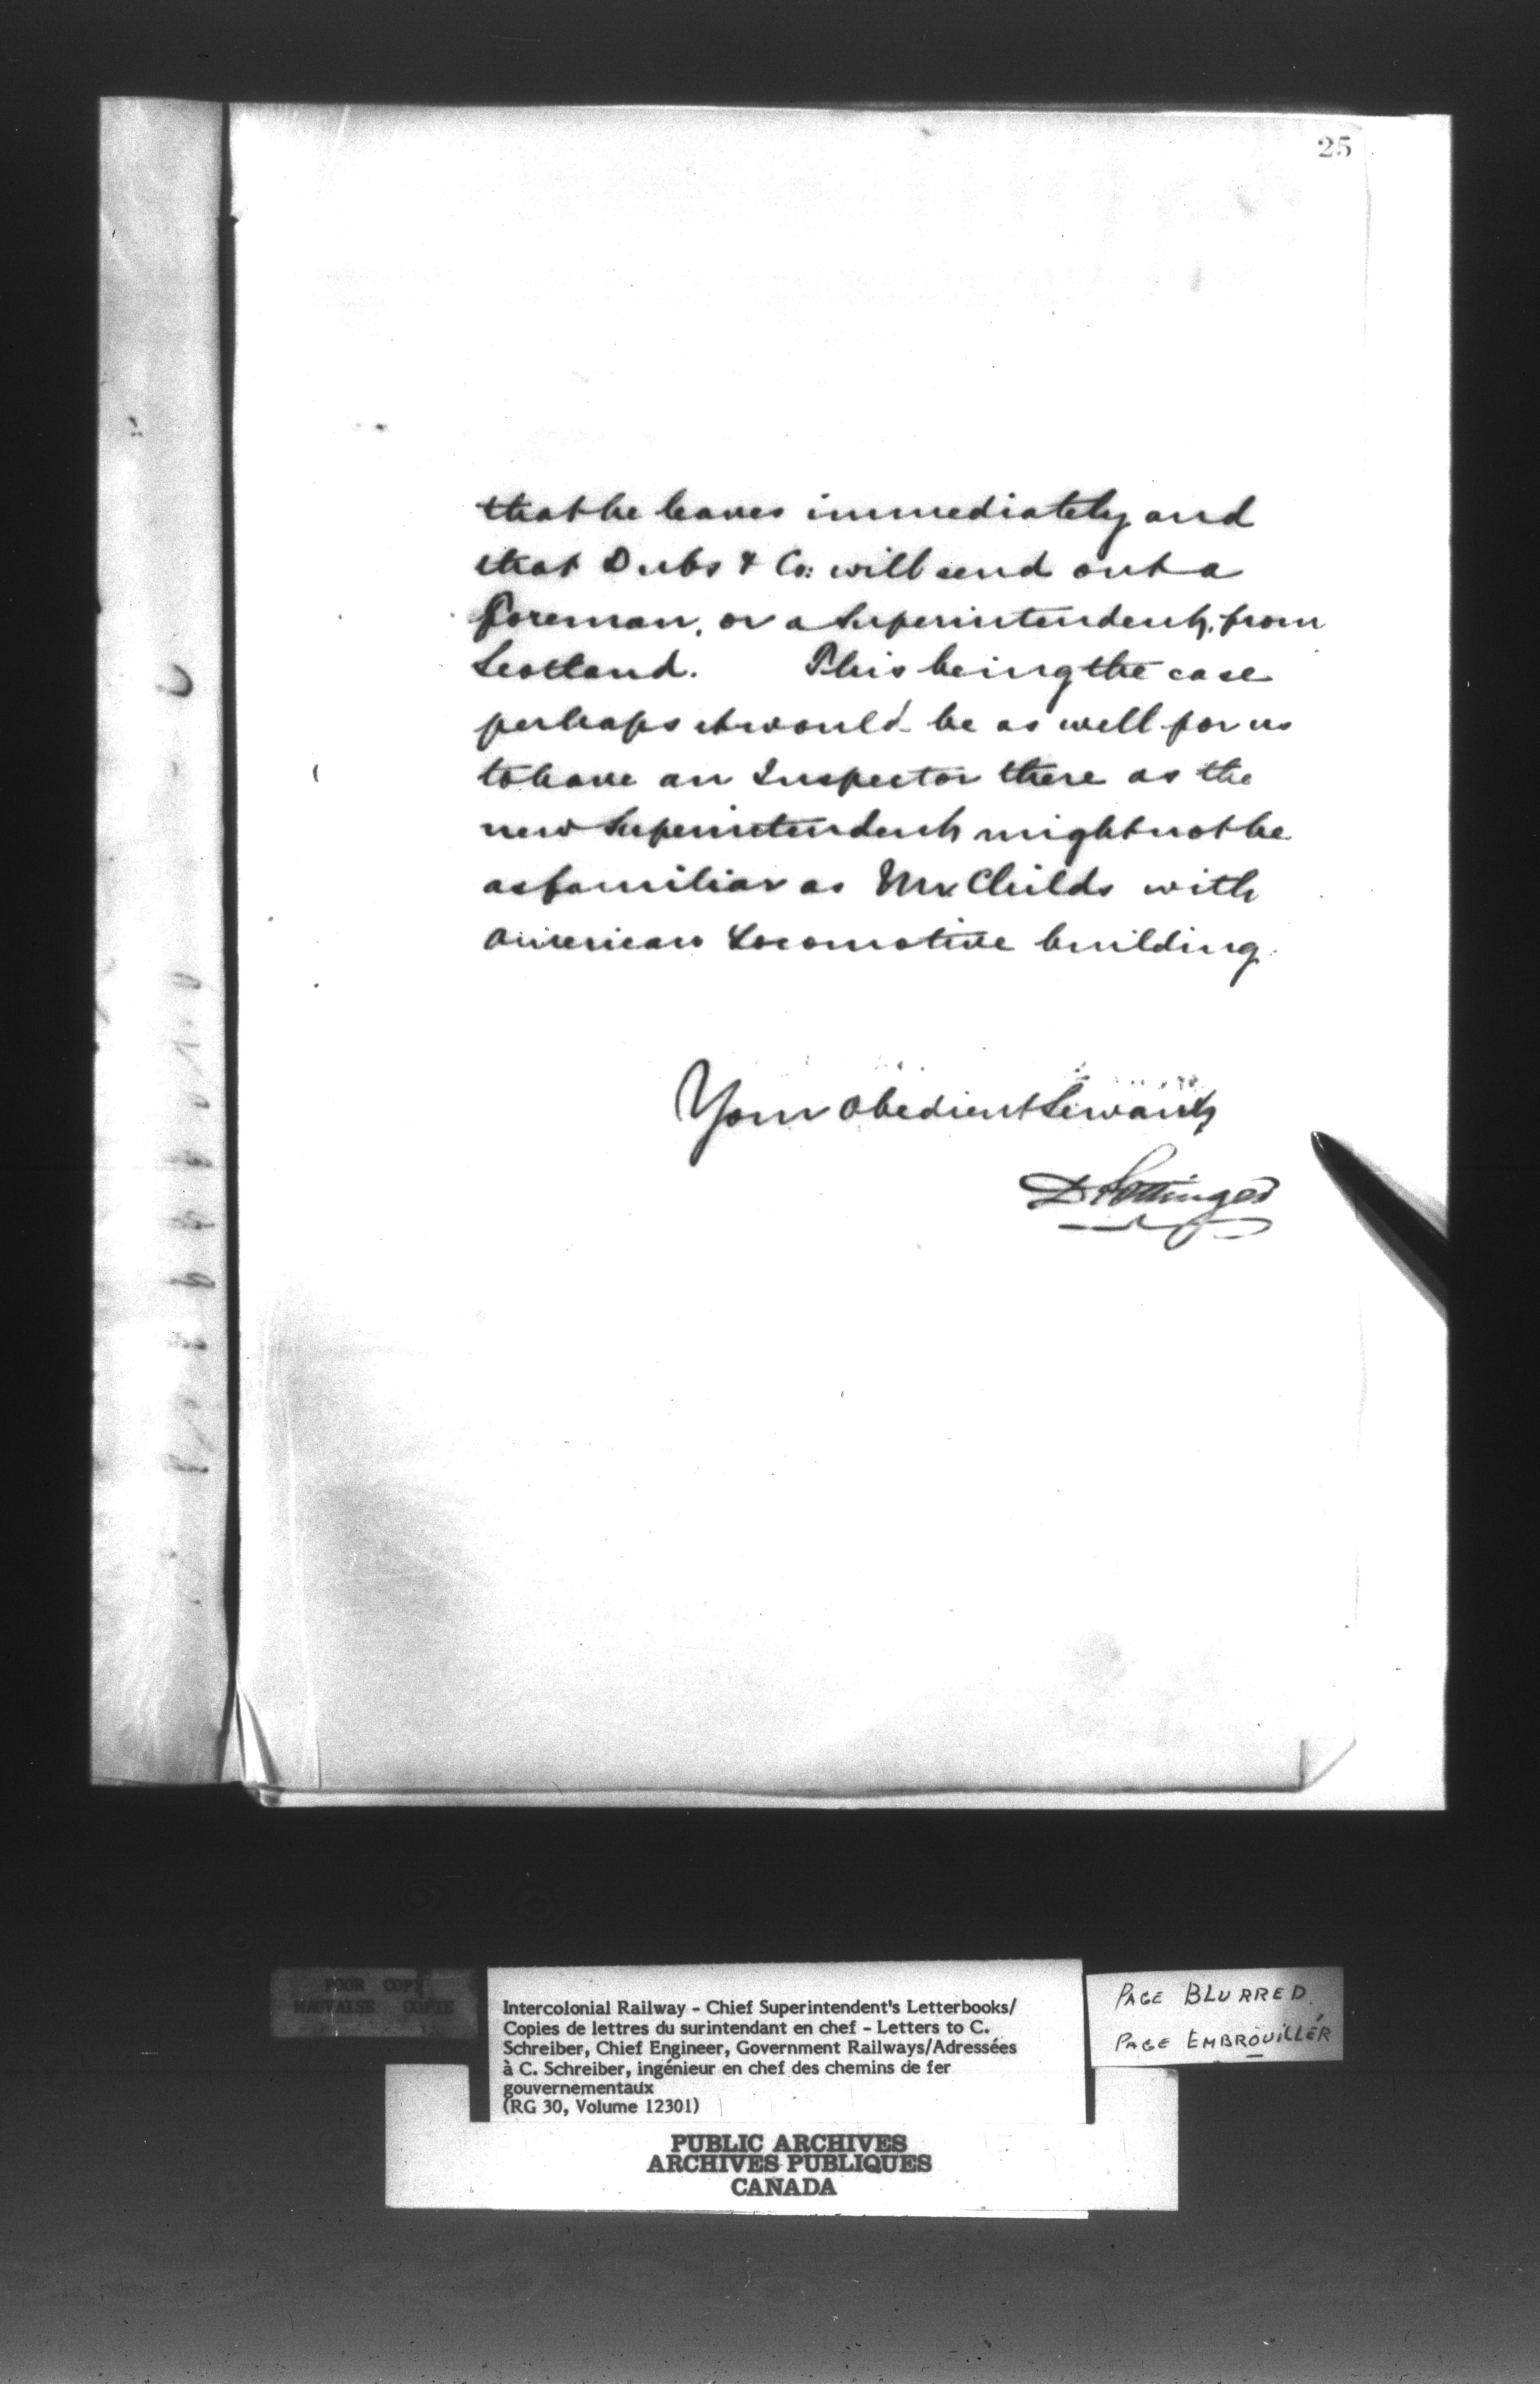 25
that he leaves immediately and
that Dubs & Co: will send out a
Foreman, or a Superintendent, from
Scotland. This being the case
perhaps it would be as well for us
to have an Inspector there as the
new Superintendent might not be
as familiar as Mr. Childs with
American Locomotive building.
Your Obedient Servant,
D Pottinger
POOR COPY
MAUVAISE COPIE
Intercolonial Railway - Chief Superintendent's Letterbooks/
Copies de lettres du surintendant en chef - Letters to C.
Schreiber, Chief Engineer, Government Railways/Adressées
à C. Schreiber, ingénieur en chef des chemins de fer
gouvernementaux
(RG 30, Volume 12301)
PAGE BLURRED
PAGE EMBROUILLÉR
PUBLIC ARCHIVES
ARCHIVES PUBLIQUES
CANADA